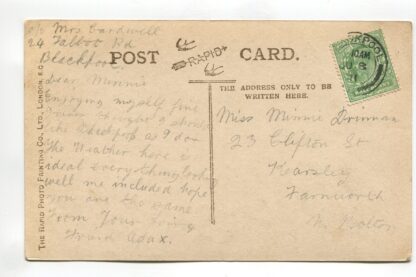 c/o Mrs Cardwell
24 Talbot Rd
Blackpool
Dear Minnie
Enjoying myself fine
Blackpool as I do
The Weather here is
ideal everything looks
well me included hope
you are the same
From Your loving
POST CARD.
RAPID
THE ADDRESS ONLY TO BE
WRITTEN HERE.
Miss Minnie
23 Clifton St
Kearsley
Farnworth
Nr Bolton
THE RAPID PHOTO PRINTING CO., LTD., LONDON, E.C.